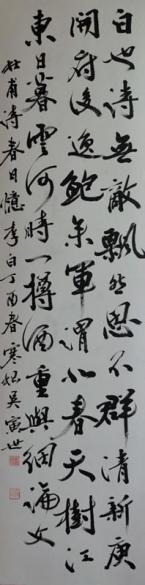 白也詩無敵飄然思不群清新庾
開府俊逸鮑參軍渭北春天樹江
東日暮雲何時一樽酒重與細論文
杜甫詩春日憶李白丁酉春寒吳寅世